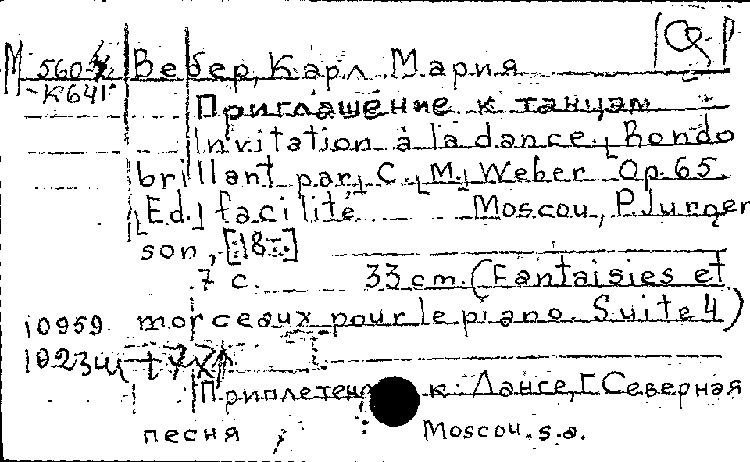 М 560-4 Вебер, Карл Мария
К641 Приглашение к танцам
Invitation à la dance. Rondo
brillant par C. M. Weber Op. 65.
[Ed.] facilité Moscou, P. Jurgen
son, [18-]
7 с. 33 cm. (Fantaisies et
10959 morceaux pour le piano. Suite 4)
Приплетено к: Лансе, Г. Северная
песня Moscou. s. a.